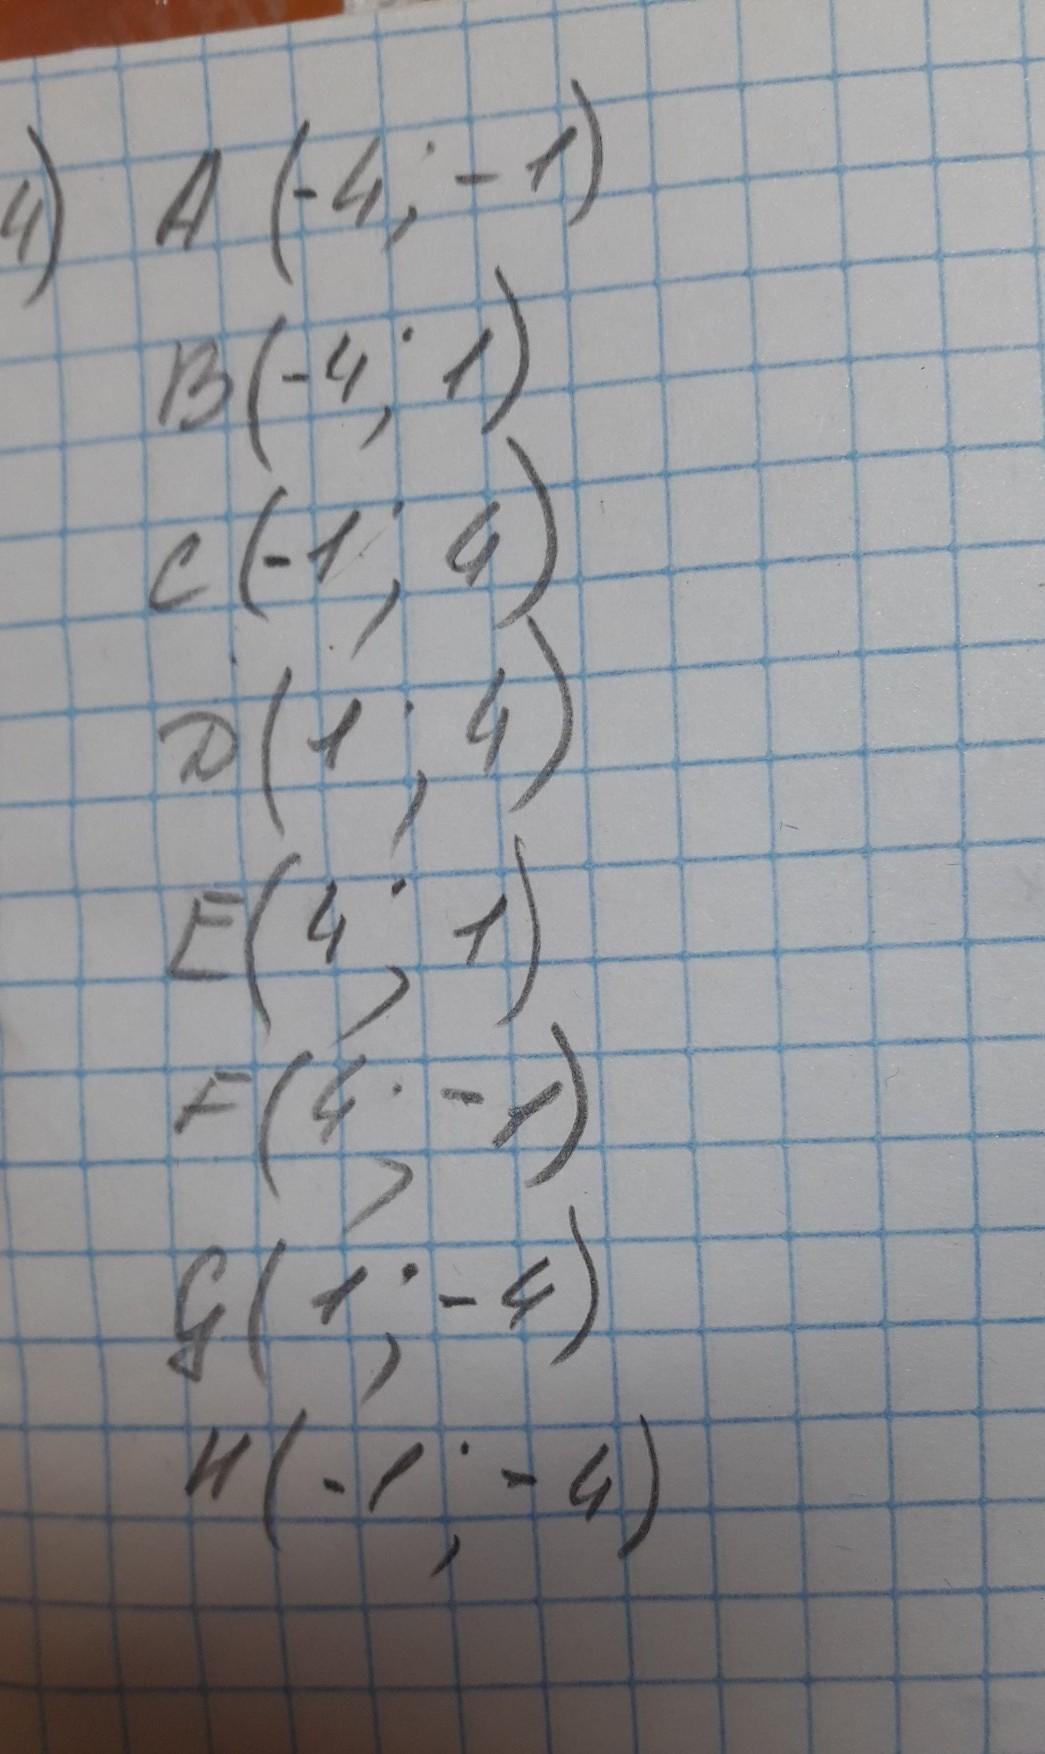 4) A (-4; -1)
B(-4; 1)
C(-1; 4)
D(1; 4)
E(4; 1)
F(4; -1)
G(1; -4)
H(-1; -4)